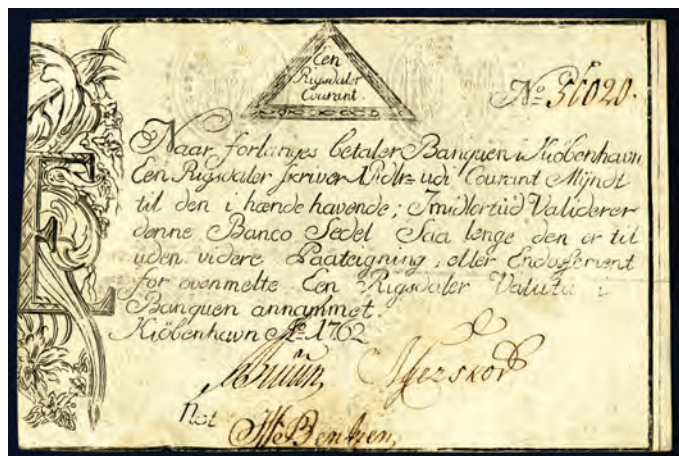 Een
Rigsdaler
Courant.
No 56020.
Naar forlanges betaler Banquen i Kiöbenhavn
Een Rigsdaler skriver 1 Rdlr udi Courant Mÿndt
til den i hænde havende; Imidlertiid Validerer
denne Banco Sedel Saa lenge den er til
uden videre Paateigning, eller Endossement
for ovenmelte Een Rigsdaler Valuta i
Banquen annammet.
Kiöbenhavn Ao 1762
Not